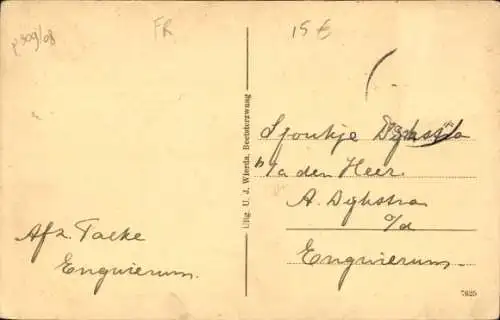 p 309/08
FR
15 €
Sjoukje Dykstra
b/a den Heer
A. Dykstra
o/d
Engwierum
Afz. Taeke
Engwierum.
Uitg. U. J. Wierda, Beetsterzwaag
7625